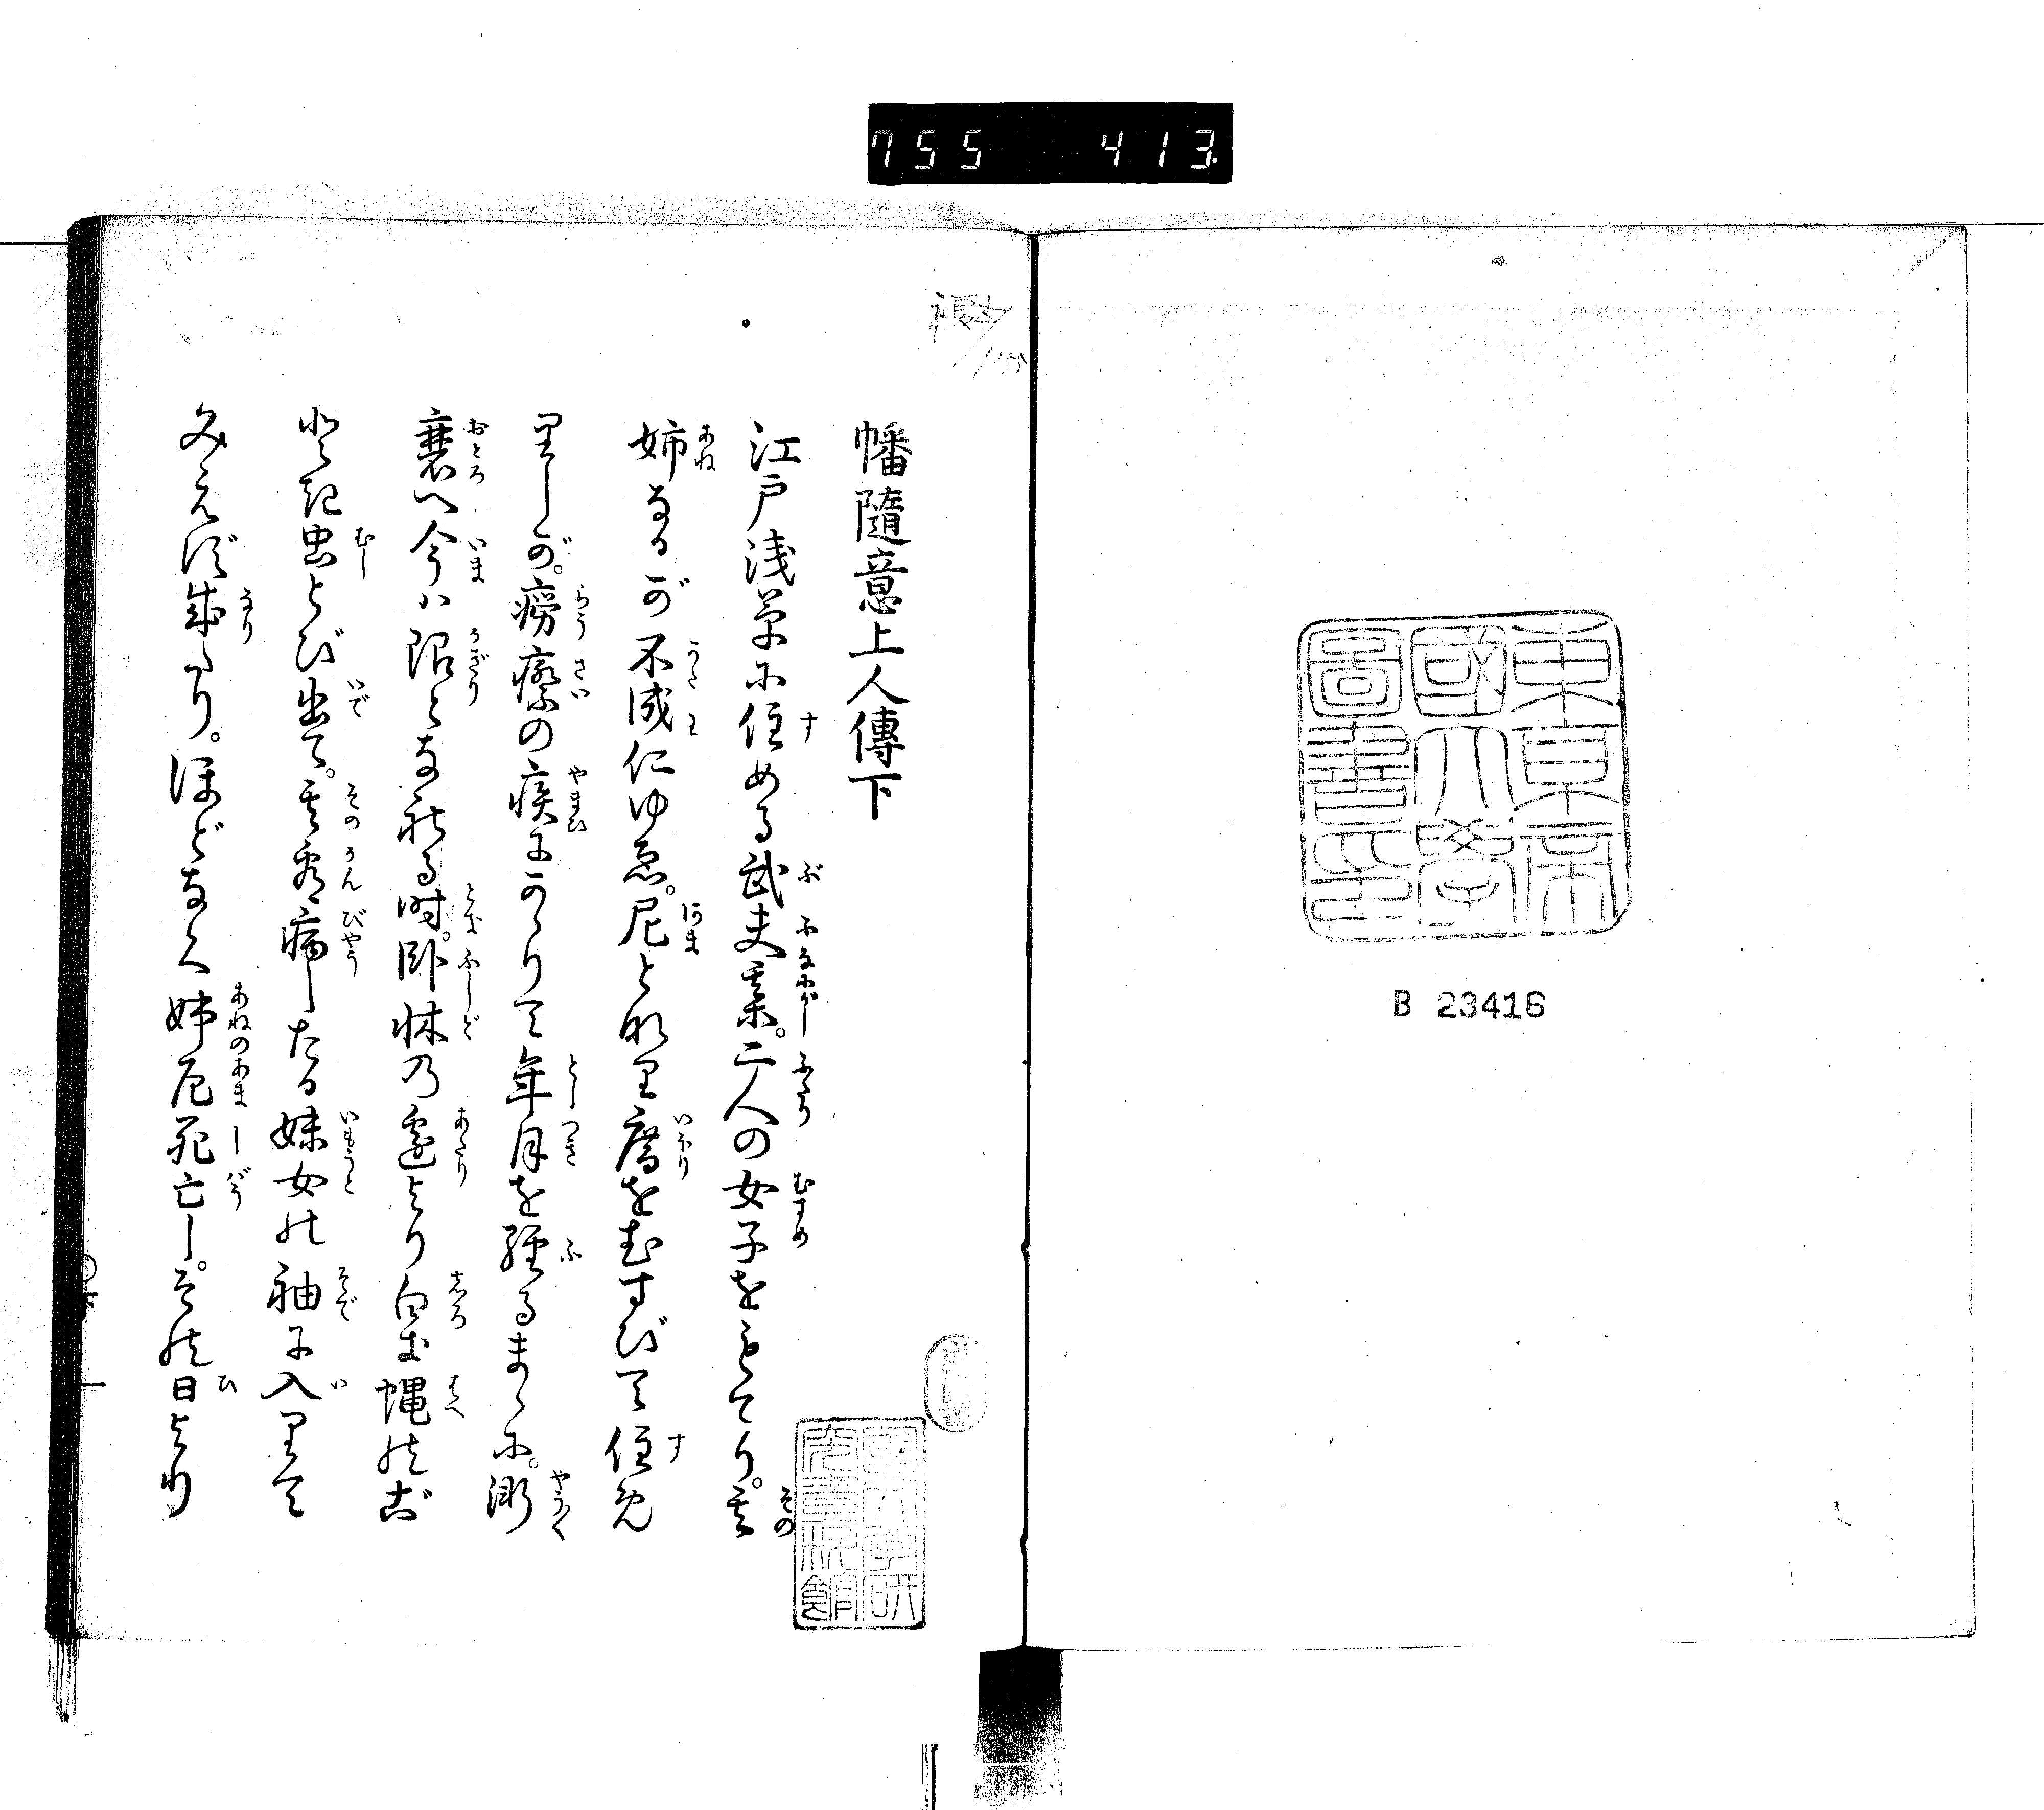 755 413
東京帝
國大學
圖書印
B 23416
幡隨意上人傳下
江戸浅草に住める武夫某。二人の女子をもてり。其
姉なるが不成仁ゆゑ。尼と那り庵をむすびて住め
りしが。癆瘵の疾にかゝりて年月を経るまゝに。漸
衰へ今ハ限となれる時。臥牀乃邊より白き蝿のご
とき虫とび出て。其看病したる妹女の袖に入りて
みえず成たり。ほどなく姉尼死亡し。その日より